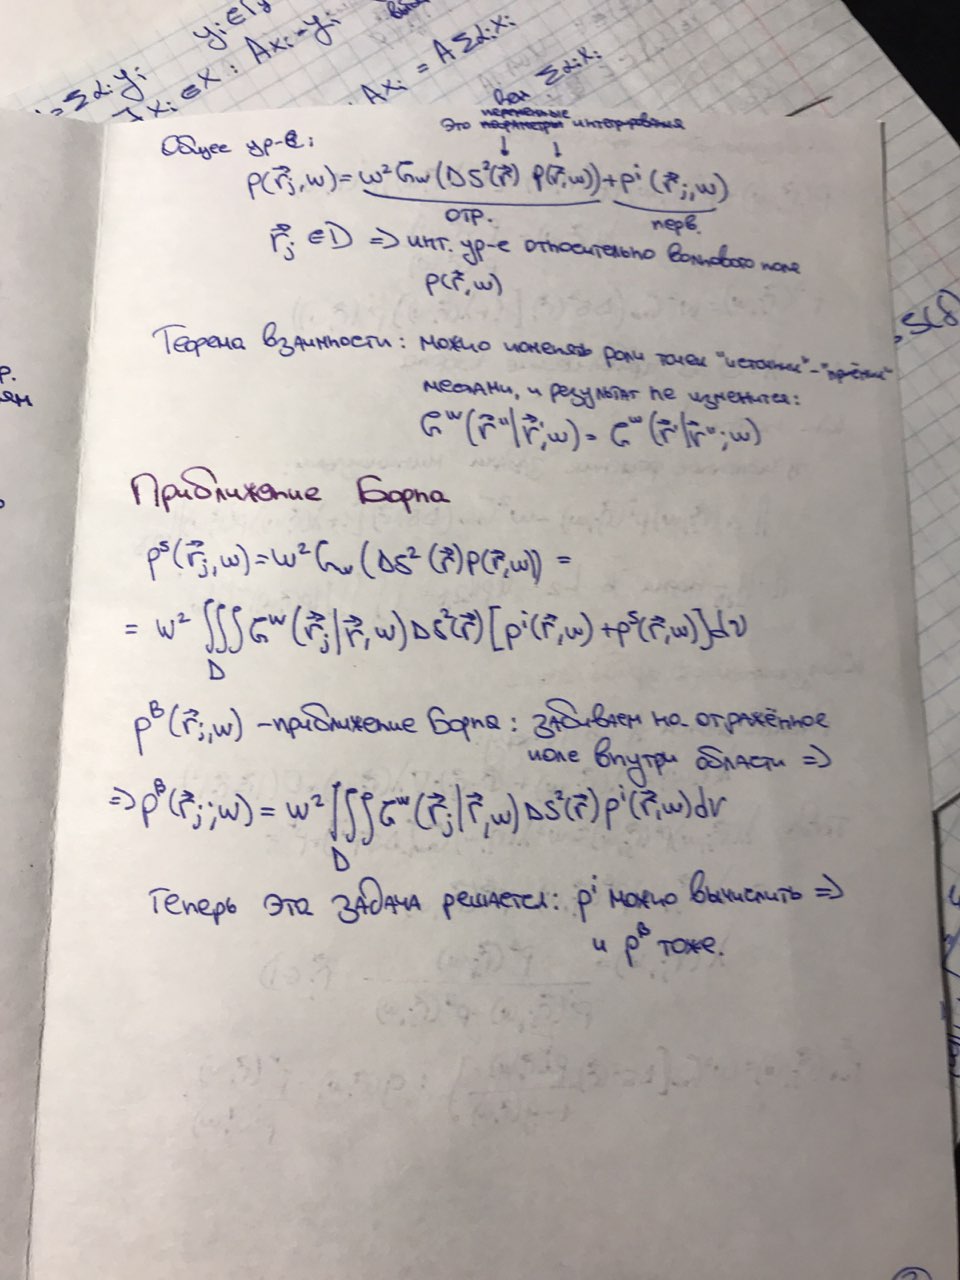 Σαᵢyᵢ yᵢ∈Y
∃xᵢ∈X : Axᵢ=yᵢ
Axᵢ = AΣαᵢxᵢ
Σαᵢxᵢ
Это интегрирования
Общее ур-е:
p(r⃗ⱼ,w)=w²Gw(ΔS²(r⃗) p(r⃗,w))+pⁱ(r⃗ⱼ,w)
отр. перв.
r⃗ⱼ∈D ⇒ инт. ур-е относительно волнового поля
p(r⃗,w)
Теорема взаимности: можно поменять роли точек "источник"-"приёмник"
местами, и результат не изменится:
Gʷ(r⃗''|r⃗';w)=Gʷ(r⃗'|r⃗'';w)
Приближение Борна
pˢ(r⃗ⱼ,w)=w²Gw(ΔS²(r⃗)p(r⃗,w)) =
= w²∭Gʷ(r⃗ⱼ|r⃗,w)ΔS²(r⃗)[pⁱ(r⃗,w)+pˢ(r⃗,w)]dv
D
pᴮ(r⃗ⱼ,w) -приближение Борна: забиваем на отражённое
поле внутри области ⇒
⇒pᴮ(r⃗ⱼ;w)=w²∭Gʷ(r⃗ⱼ|r⃗,w)ΔS²(r⃗)pⁱ(r⃗,w)dv
D
Теперь эта задача решается: pⁱ можно вычислить ⇒
и pᴮ тоже.